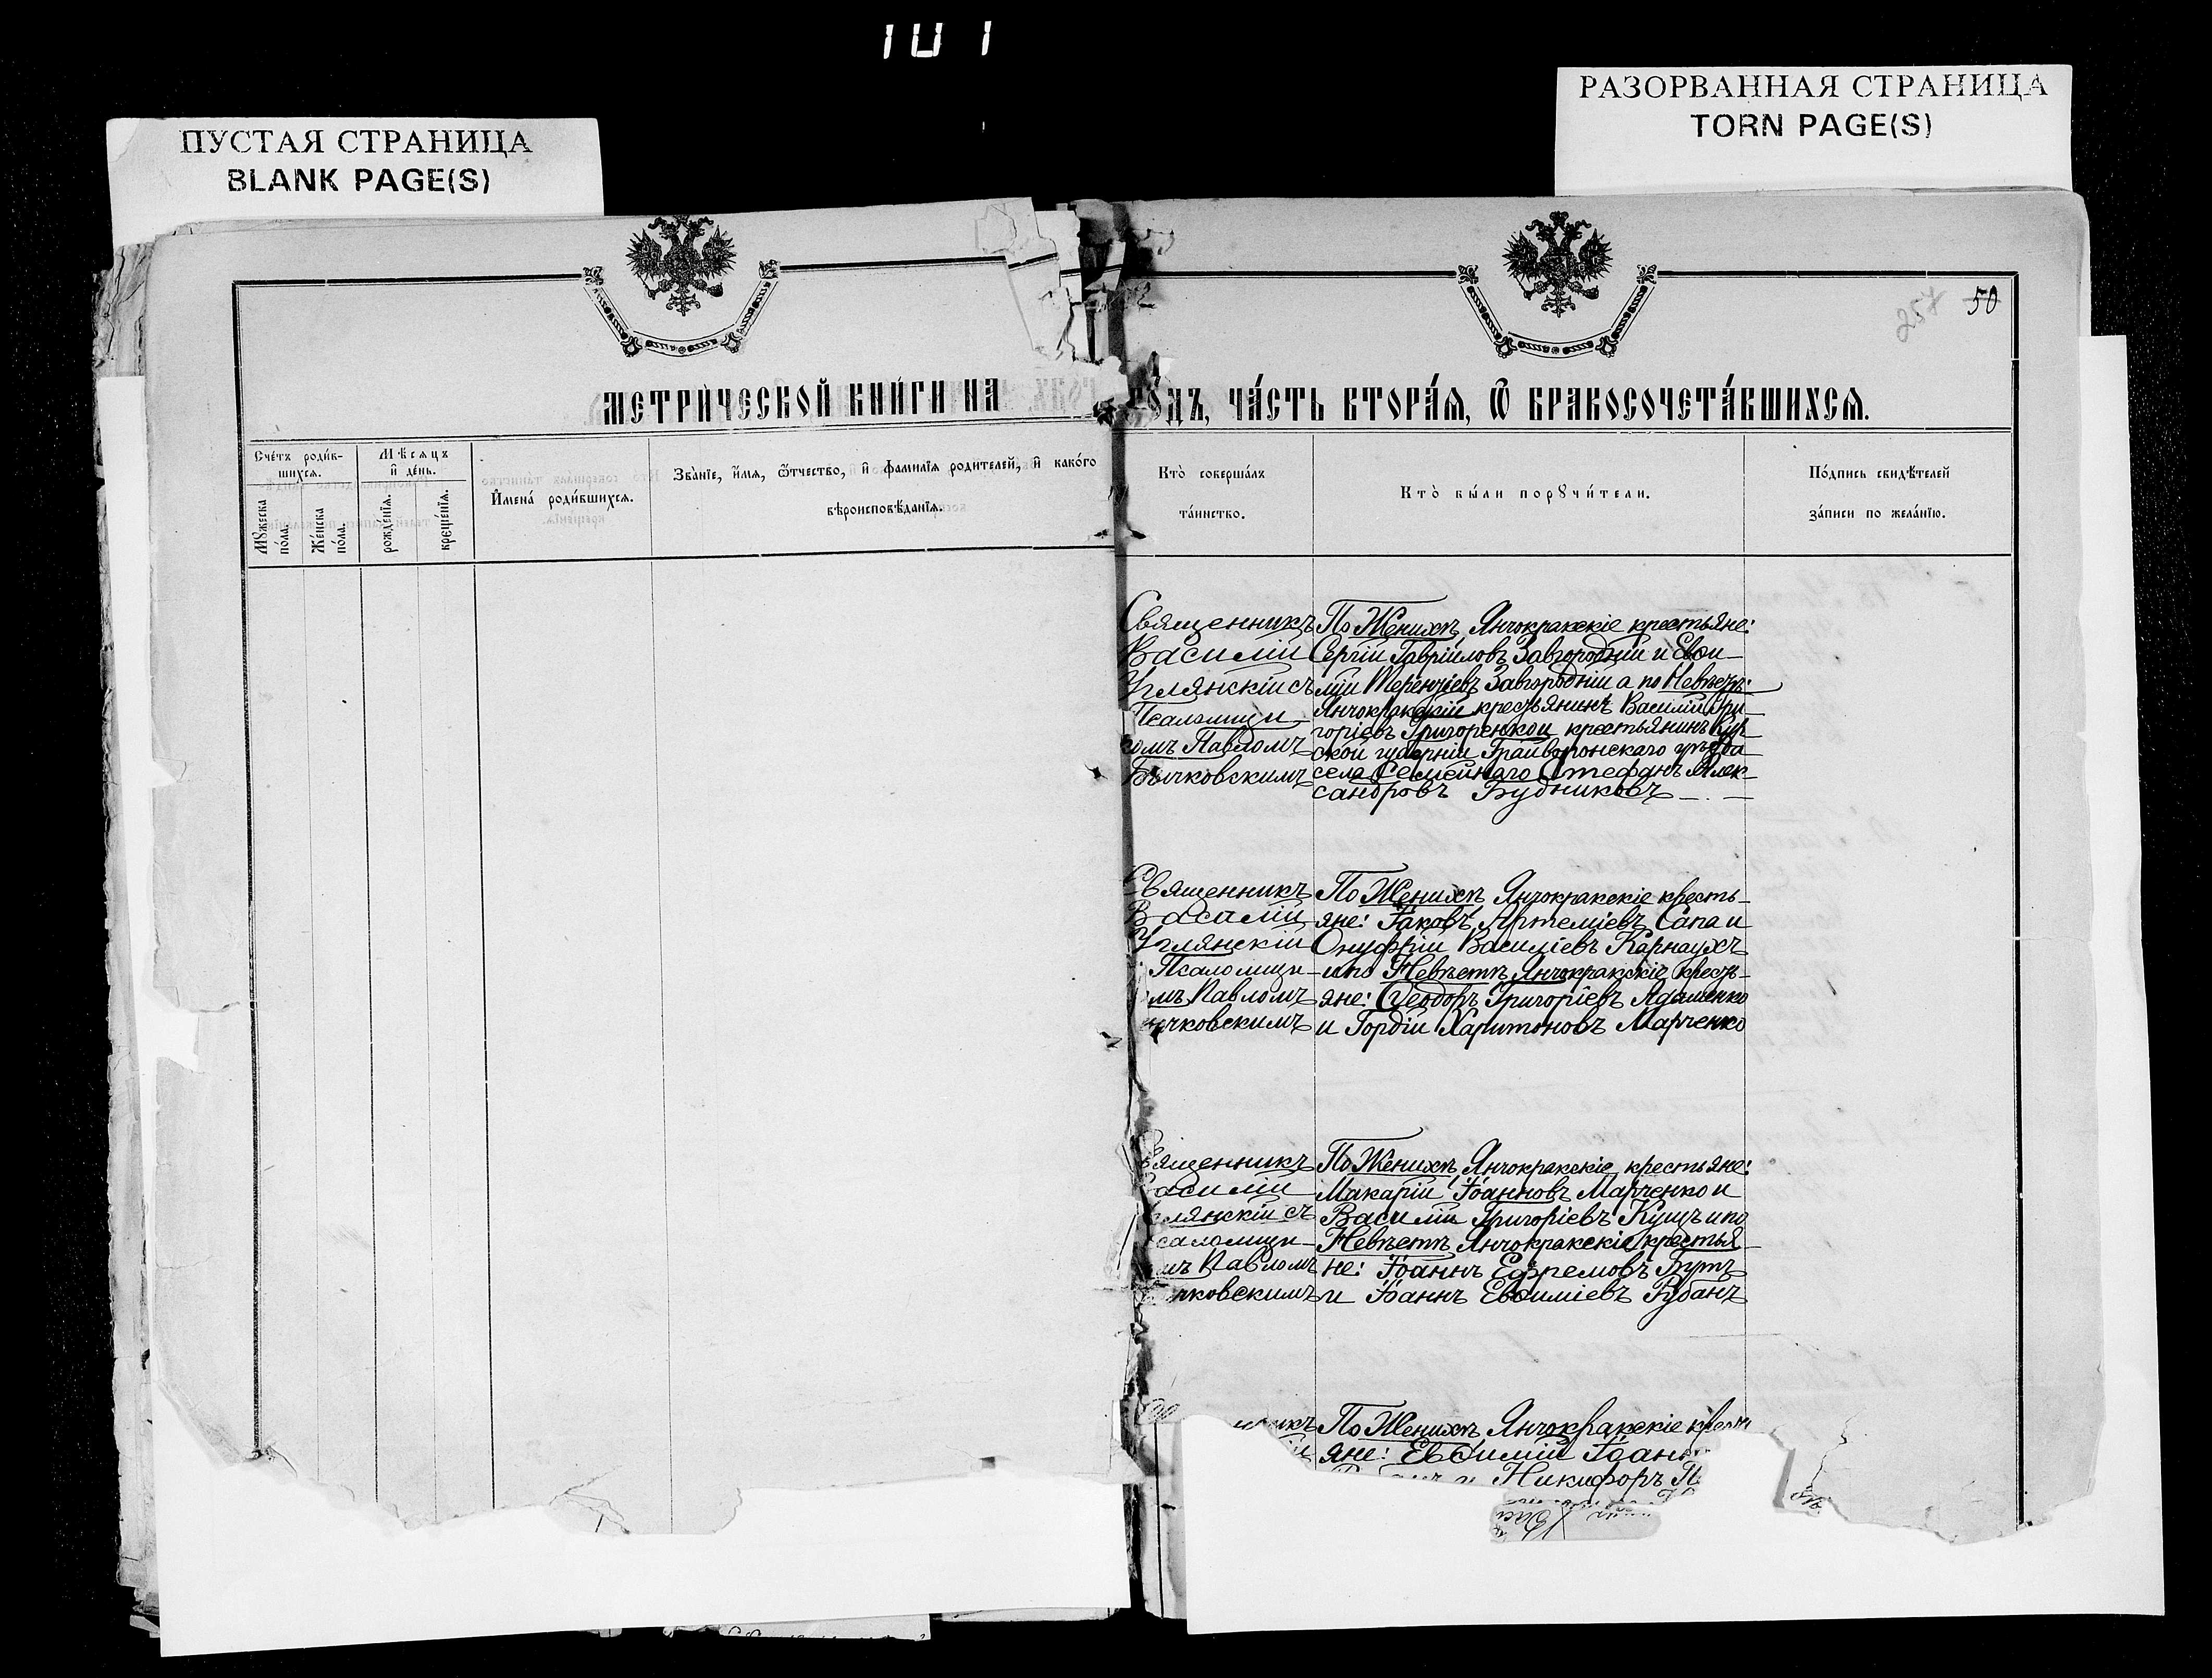 101
ПУСТАЯ СТРАНИЦА
BLANK PAGE(S)
РАЗОРВАННАЯ СТРАНИЦА
TORN PAGE(S)
257 50
МЕТРИ́ЧЕСКОЙ КНИ́ГИ НА
ГО́ДЪ, ЧА́СТЬ ВТОРА́Я, Ѿ БРАКОСОЧЕТА́ВШИХСЯ.
Сче́тъ роди́в-
шихся.
Мꙋ́жеска
по́ла.
Же́нска
по́ла.
Мѣ́сяцъ
и҆ де́нь.
рожде́нїя.
креще́нїя.
И҆мена́ роди́вшихся.
Зва́нїе, и҆́мя, ѻ҆́тчество, и҆ фами́лїя роди́телей, и҆ како́гѡ
вѣроисповѣ́данїя.
Кто̀ соверша́лъ
та́инство.
Кто̀ бы́ли порꙋчи́тели.
По́дпись свидѣ́телей
за́писи по жела́нїю.
Священникъ
Василій
Углянскій съ
Псаломщи-
комъ Павломъ
Бычковскимъ
По Женихѣ Янчокракскіе крестьяне:
Сергій Гавріиловъ Завгородній и Евѳи-
мій Терентіевъ Завгородній а по Невѣстѣ:
Янчокракскій крестьянинъ Василій Гри-
горіевъ Григоренко и крестьянинъ Кур-
ской губерніи Грайворонскаго уѣзда
села Семейнаго Стефанъ Алек-
сандровъ Будниковъ
Священникъ
Василій
Углянскій
Псаломщи-
мъ Павломъ
чковскимъ
По Женихѣ Янчокракскіе кресть-
яне: Іаковъ Артеміевъ Сапа и
Онуфрій Василіевъ Карнаухъ
и по Невѣстѣ Янчокракскіе кресть-
яне: Ѳеодоръ Григоріевъ Адаменко
и Гордій Харитоновъ Марченко
вященникъ
асилій
лянскій съ
саломщи-
мъ Павломъ
чковскимъ
По Женихѣ Янчокракскіе крестьяне:
Макарій Іоанновъ Марченко и
Василій Григоріевъ Кущъ и по
Невѣстѣ Янчокракскіе крестья-
не: Іоаннъ Ефремовъ Бутъ
и Іоаннъ Евѳиміевъ Рубанъ
икъ
По Женихѣ Янчокракскіе крест
яне: Евѳимій Іоан
и Никифоръ П